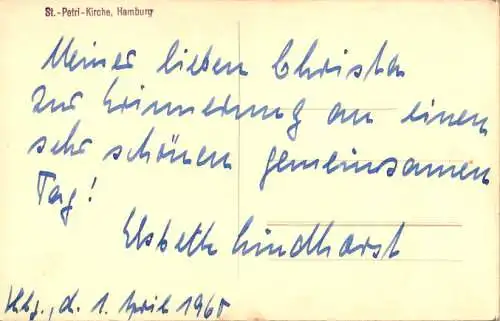 St.-Petri-Kirche, Hamburg
Meiner lieben Christa
zur Erinnerung an einen
sehr schönen gemeinsamen
Tag!
Elsbeth Lindhorst
Hbg., d. 1. April 1960